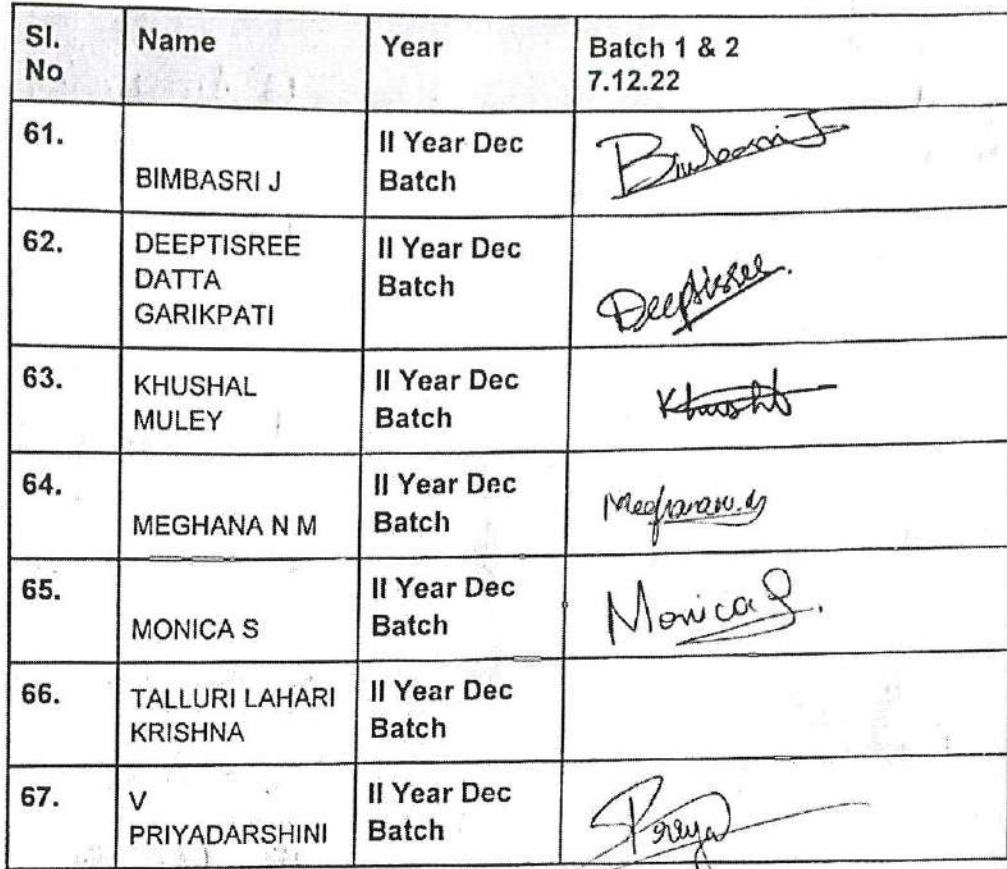 Sl. No Name Year Batch 1 & 2
7.12.22
61. BIMBASRI J II Year Dec Batch Bimbasri J
62. DEEPTISREE DATTA GARIKPATI II Year Dec Batch Deeptisree.
63. KHUSHAL MULEY II Year Dec Batch
64. MEGHANA N M II Year Dec Batch
65. MONICA S II Year Dec Batch Monica S.
66. TALLURI LAHARI KRISHNA II Year Dec Batch
67. V PRIYADARSHINI II Year Dec Batch Priya